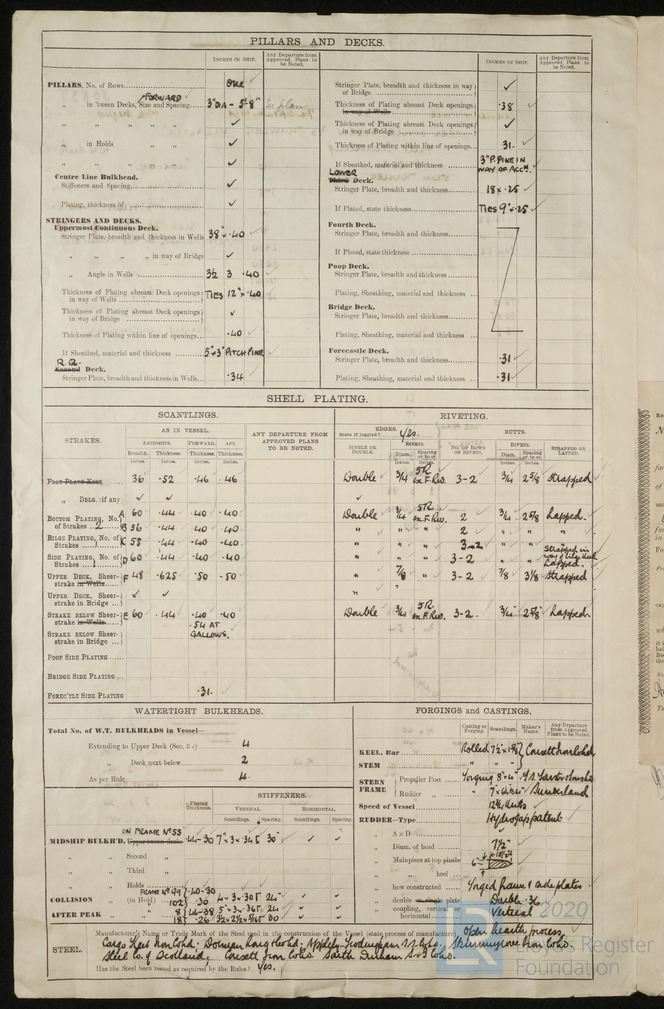 PILLARS AND DECKS.
INCHES IN SHIP.
Any Departure from Approved Plans to be Noted.
PILLARS, No. of Rows
One
FORWARD
" in 'tween Decks, Size and Spacing
3"DIA - 5'-8"
" in Holds
Centre Line Bulkhead.
Stiffeners and Spacing
Plating, thickness of
STRINGERS AND DECKS.
Uppermost Continuous Deck.
Stringer Plate, breadth and thickness in Wells
38 × .40
" " " " in way of Bridge
" Angle in Wells
3½ 3 .40
Thickness of Plating abreast Deck openings in way of Wells
TIES 12" × .40
Thickness of Plating abreast Deck openings in way of Bridge
Thickness of Plating within line of openings
.40
If Sheathed, material and thickness
5"×3" PITCH PINE
R.Q.
Second Deck.
Stringer Plate, breadth and thickness in Wells
.34
INCHES IN SHIP.
Any Departure from Approved Plans to be Noted.
Stringer Plate, breadth and thickness in way of Bridge
Thickness of Plating abreast Deck openings in way of Wells
.38
Thickness of Plating abreast Deck openings in way of Bridge
Thickness of Plating within line of openings
31.
If Sheathed, material and thickness
3" P. PINE IN WAY OF ACCN.
LOWER
Third Deck.
Stringer Plate, breadth and thickness
18 × .25
If Plated, state thickness
TIES 9" × .25
Fourth Deck.
Stringer Plate, breadth and thickness
If Plated, state thickness
Poop Deck.
Stringer Plate, breadth and thickness
Plating, Sheathing, material and thickness
Bridge Deck.
Stringer Plate, breadth and thickness
Plating, Sheathing, material and thickness
Forecastle Deck.
Stringer Plate, breadth and thickness
.31
Plating, Sheathing, material and thickness
.31
SHELL PLATING.
SCANTLINGS.
RIVETING.
STRAKES.
AS IN VESSEL.
ANY DEPARTURE FROM APPROVED PLANS TO BE NOTED.
EDGES.
State if joggled? Yes.
BUTTS.
AMIDSHIPS. FORWARD. AFT.
Breadth. Thickness. Thickness Thickness.
SINGLE OR DOUBLE.
RIVETS.
Diam. Spacing cr. to cr.
No. OF ROWS OF RIVETS.
RIVETS.
Diam. Spacing cr. to cr.
STRAPPED OR LAPPED.
Inches. Inches. Inches. Inches.
36 .52 .46 .46 Double ¾ 3-2 ¾ 2⅝ Strapped
" DBLG. (if any)
BOTTOM PLATING, No. of Strakes 2
A 60 .44 .40 .40 Double ¾ 2 ¾ 2⅝ Lapped.
B 56 .44 .40 .40 " " " 2 " " "
BILGE PLATING, No. of Strakes 1
.44 .40 .40 " " " 3-2 " "
SIDE PLATING, No. of Strakes 1
D 60 .44 .40 .40 " " " 3-2 " " Lapped.
UPPER DECK, Sheerstrake in Wells
48 .625 .50 .50 " ⅞ " 3-2 ⅞ 3⅛ Strapped
UPPER DECK, Sheerstrake in Bridge
STRAKE BELOW Sheerstrake in Wells
E 60 .44 .40 .40 Double ¾ 3-2 ¾ 2⅝ Lapped.
.54 AT GALLOWS.
STRAKE BELOW Sheerstrake in Bridge
POOP SIDE PLATING
BRIDGE SIDE PLATING
FOREC'TLE SIDE PLATING
.31.
WATERTIGHT BULKHEADS.
Total No. of W.T. BULKHEADS in Vessel—
Extending to Upper Deck
4
" Deck next below
2
As per Rule
4.
STIFFENERS.
Plating Thickness.
VERTICAL HORIZONTAL.
Scantlings. Spacing. Scantlings. Spacing.
ON FRAME No 55
MIDSHIP BULKH'D, Upper tween decks
.30 7" × 3 × 30"
" Second "
" Third "
" Holds
COLLISION " (in Hold)
24"
AFTER PEAK "
FORGINGS and CASTINGS.
Casting or Forging.
Scantlings.
Maker's Name.
Any Departure from Approved Plans to be Noted.
KEEL, Bar
Rolled Consett Iron Co Ltd
STEM
STERN FRAME
Propeller Post
Forging
" Rudder "
Sunderland
Speed of Vessel
12½ Knots
RUDDER—Type
" A × D
" Diam. of head
7½"
" Mainpiece at top pintle
" " heel
" how constructed
Forged frame & side plates
" double or single plate
Double .36
" coupling, vertical or horizontal
Vertical
STEEL.
Manufacturer's Name or Trade Mark of the Steel used in the construction of the Vessel (state process of manufacture)
Open hearth process
Cargo Fleet Iron Co Ltd. Dorman Long & Co Ltd. Appleby-Frodingham Skinningrove Iron Co Ld.
Steel Co. of Scotland, Consett Iron Co Ld South Durham S. & I Co Ld.
Has the Steel been tested as required by the Rules? Yes.
© 2020
Lloyd's Register
Foundation